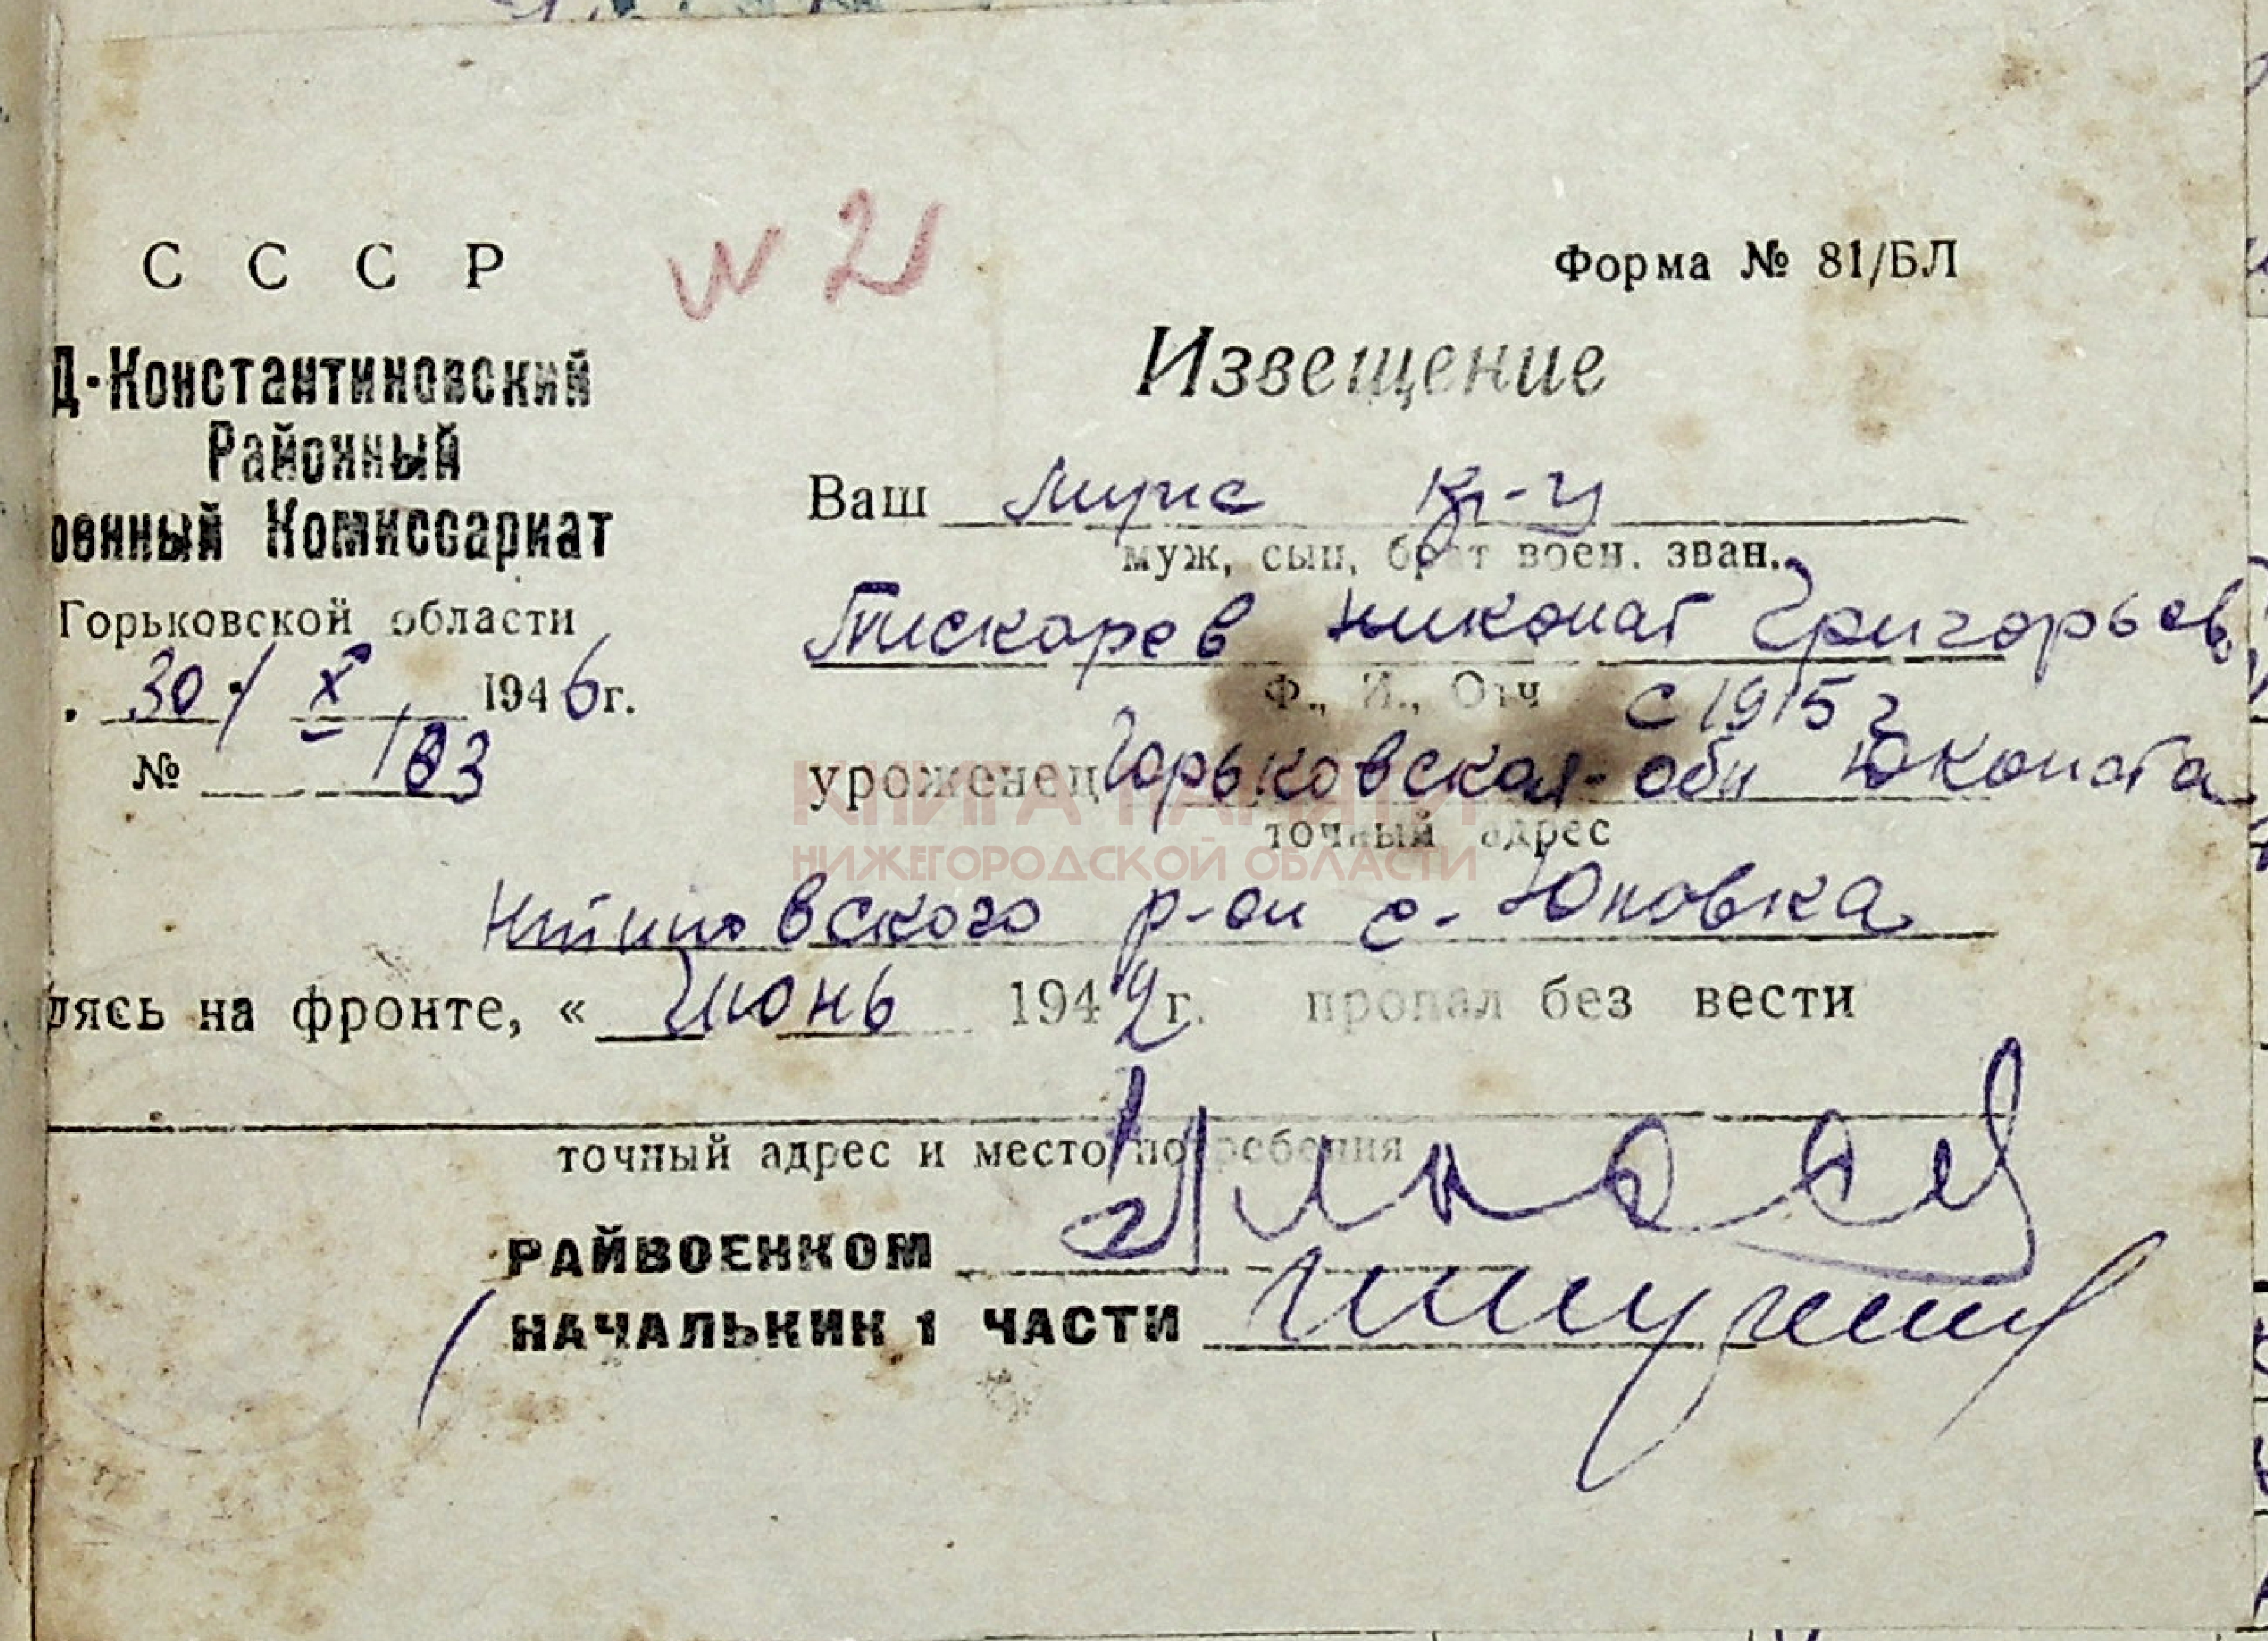 С С С Р
N 21
Форма № 81/БЛ
Д-Константиновский
Районный
оенный Комиссариат
Горьковской области
30 / X 1946г.
№ 183
Извещение
Ваш муж кр-ц
муж, сын, брат воен. зван.
Пискарев Григорьев
Ф., И., Отч с 1915 г
уроженец Горьковская обл
точный адрес
КНИГА ПАМЯТИ
НИЖЕГОРОДСКОЙ ОБЛАСТИ
р-он с. Юловка
лясь на фронте, « Июнь 1942г. пропал без вести
точный адрес и место погребения
РАЙВОЕНКОМ
НАЧАЛЬКИК 1 ЧАСТИ